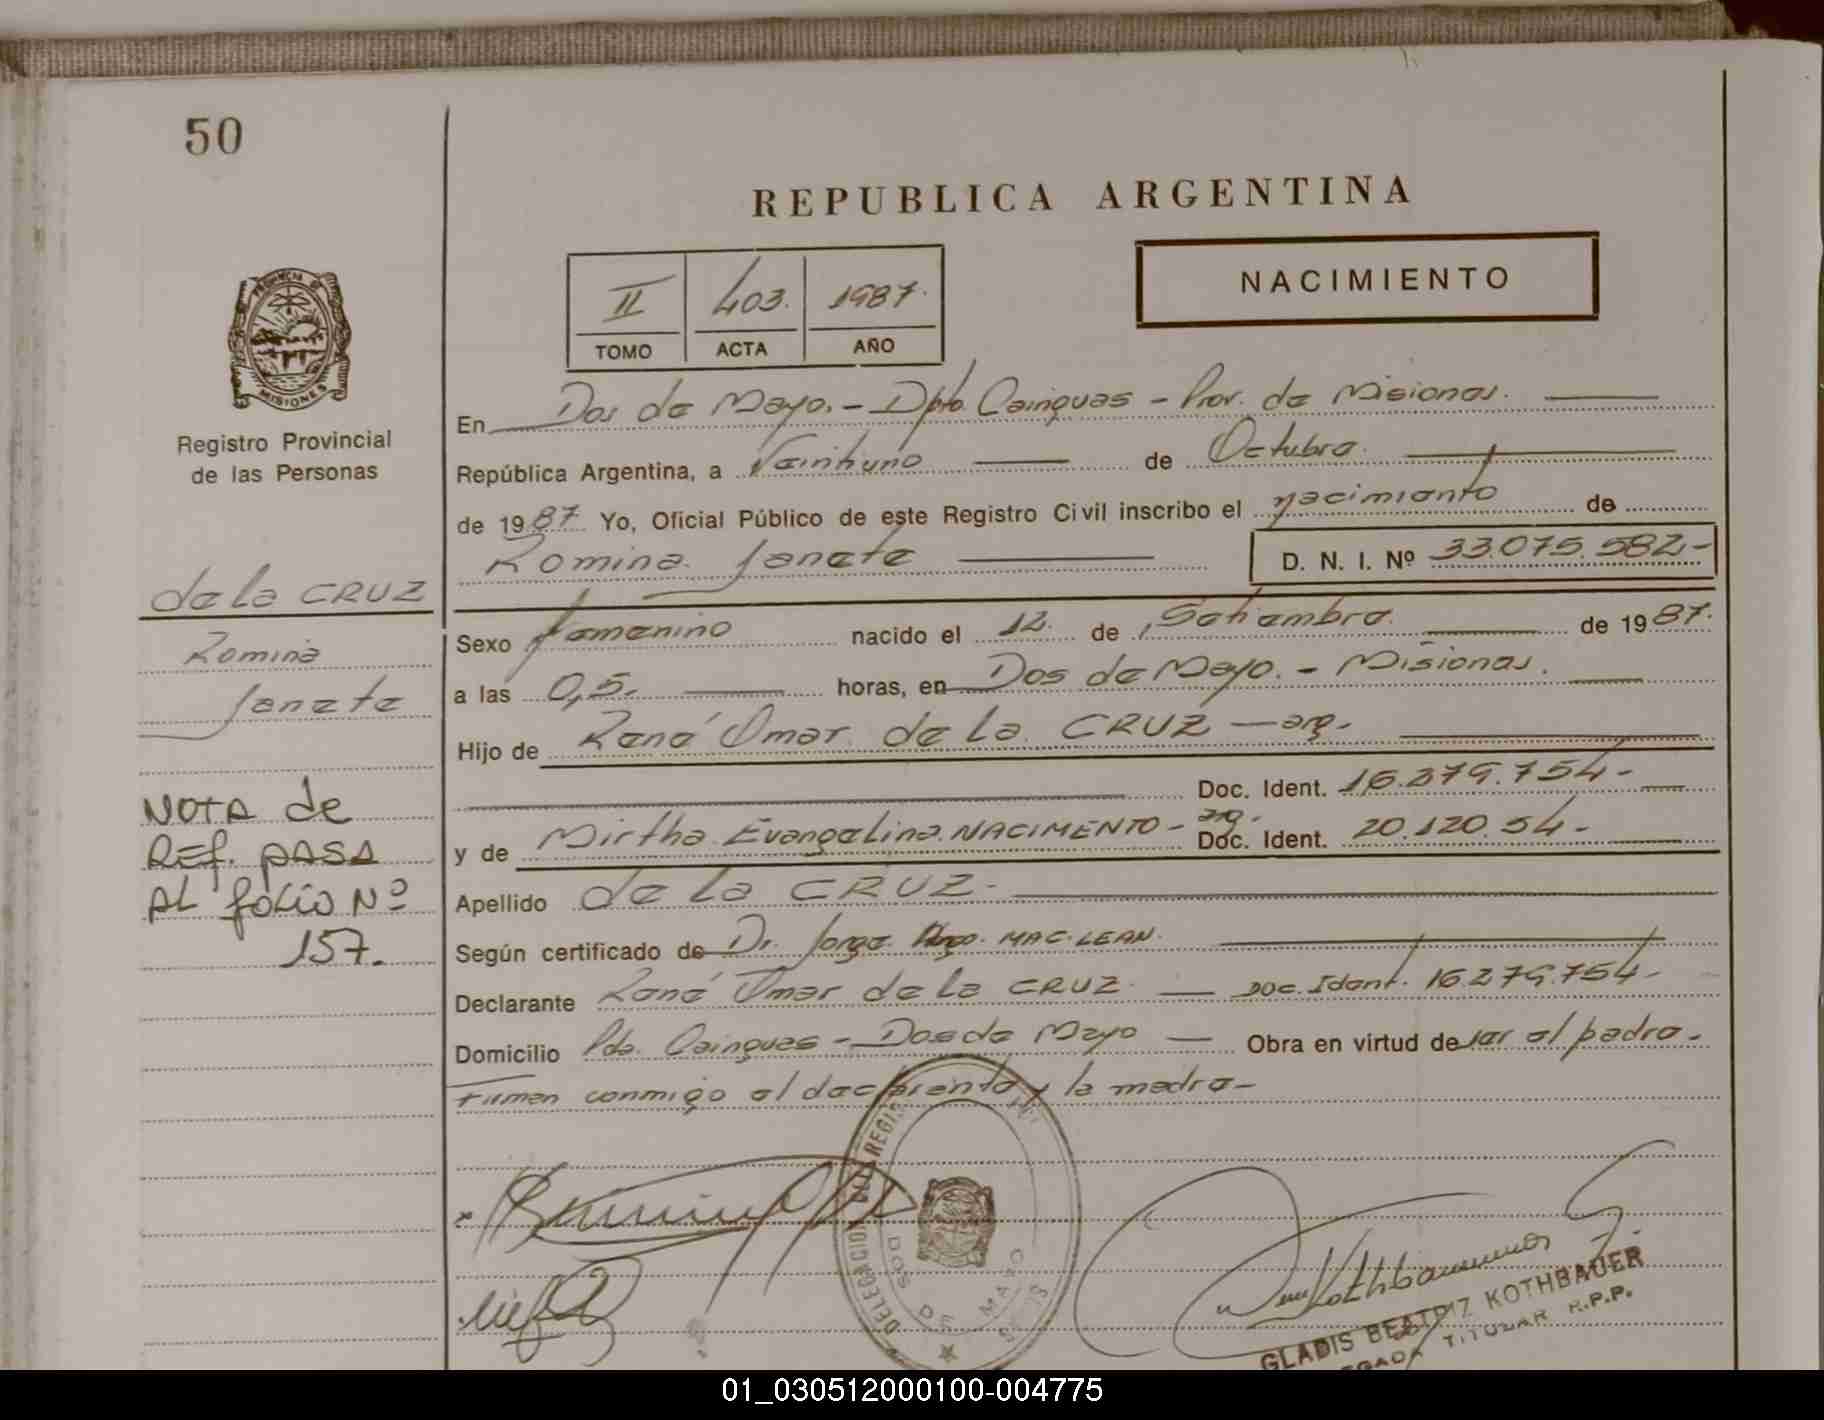 50
REPUBLICA ARGENTINA
II 403. 1987.
TOMO ACTA AÑO
NACIMIENTO
PROVINCIA DE
MISIONES
Registro Provincial
de las Personas
En Dos de Mayo. - Dpto. Cainguas - Prov. de Misiones.
República Argentina, a Veintiuno de Octubre.
de 1987. Yo, Oficial Público de este Registro Civil inscribo el nacimiento de
Romina Janete
D. N. I. Nº 33.075.582-
de la CRUZ
Romina
Janete
Sexo femenino nacido el 12. de Setiembre. de 1987.
a las 0,5. horas, en Dos de Mayo. - Misiones.
Hijo de René Omar de la CRUZ — arg.
Doc. Ident. 16.279.754-
y de Mirtha Evangelina NACIMENTO - arg. Doc. Ident. 20.120.54-
Apellido de la CRUZ-
Según certificado de Dr. Jorge Hugo MAC.LEAN.
Declarante René Omar de la CRUZ. — Doc. Ident. 16.279.754-
Domicilio Pdo. Cainguas - Dos de Mayo — Obra en virtud de ser el padre.
Firman conmigo el declarente y la madre-
NOTA de
REf. PASA
AL fOLiO Nº
157.
DELEGACION DEL REGIS
DOS DE MAYO
Kothbauer
GLADIS BEATRIZ KOTHBAUER
EGADA TITULAR R.P.P.
01_030512000100-004775